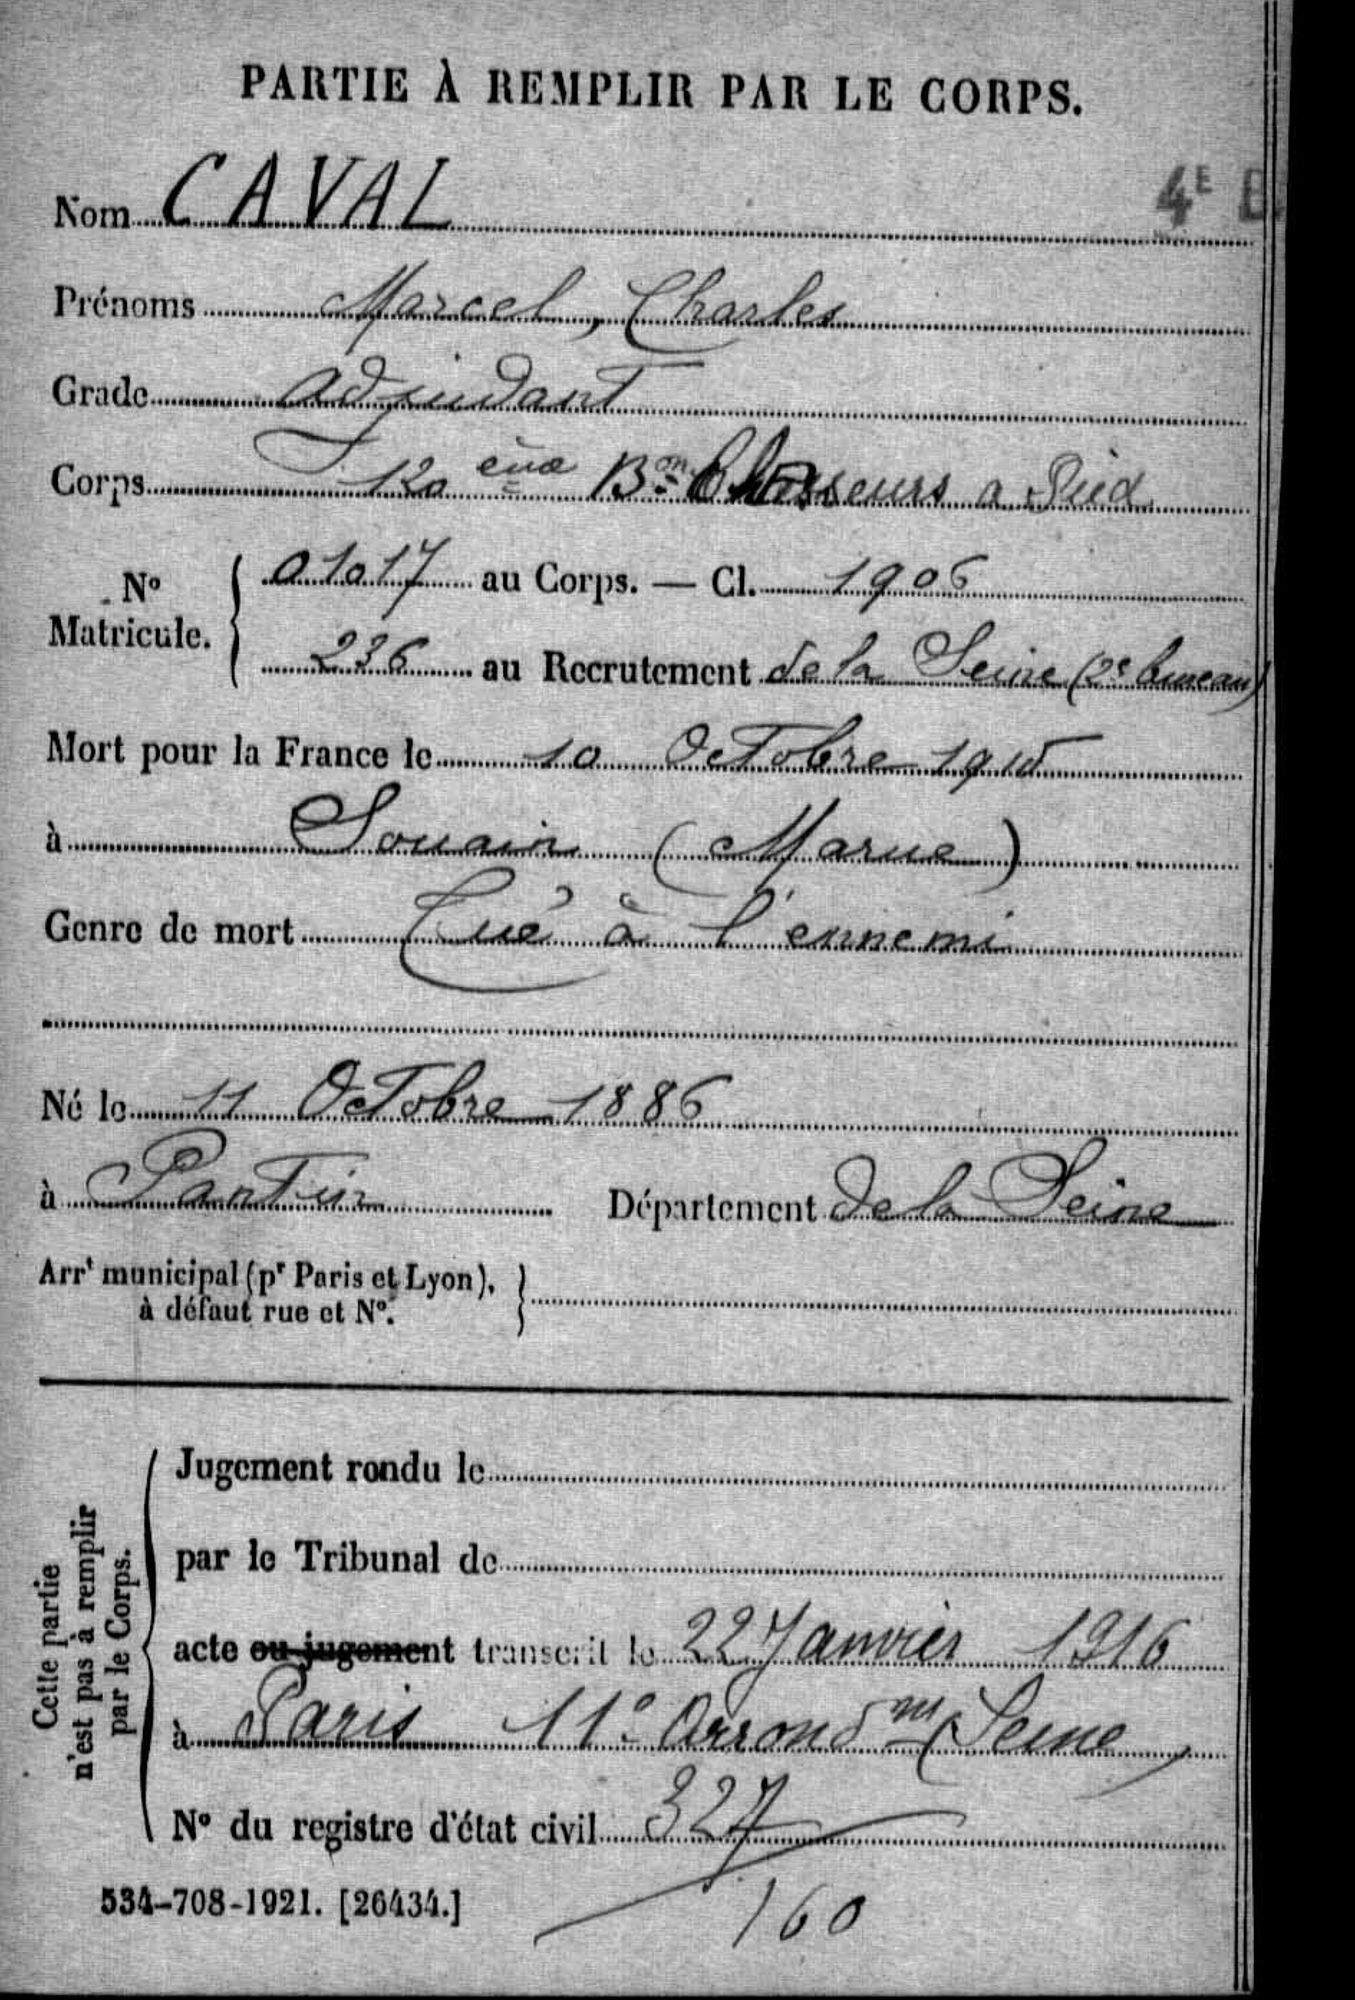 PARTIE À REMPLIR PAR LE CORPS.
4E B
Nom CAVAL
Prénoms Marcel, Charles
Grade Adjudant
Corps 120 ème Bon Chasseurs a Pied
No Matricule. { 01017 au Corps. — Cl. 1906
236 au Recrutement de la Seine (2e bureau)
Mort pour la France le 10 Octobre 1915
à Souain (Marne)
Genre de mort Tué à l'ennemi
Né le 11 Octobre 1886
à Pantin Département de la Seine
Arrt municipal (pr Paris et Lyon),
à défaut rue et No.
Cette partie
n'est pas à remplir
par le Corps.
Jugement rendu le
par le Tribunal de
acte ou jugement transcrit le 22 Janvier 1916
à Paris 11e Arrondm (Seine)
No du registre d'état civil 327
534-708-1921. [26434.]
160